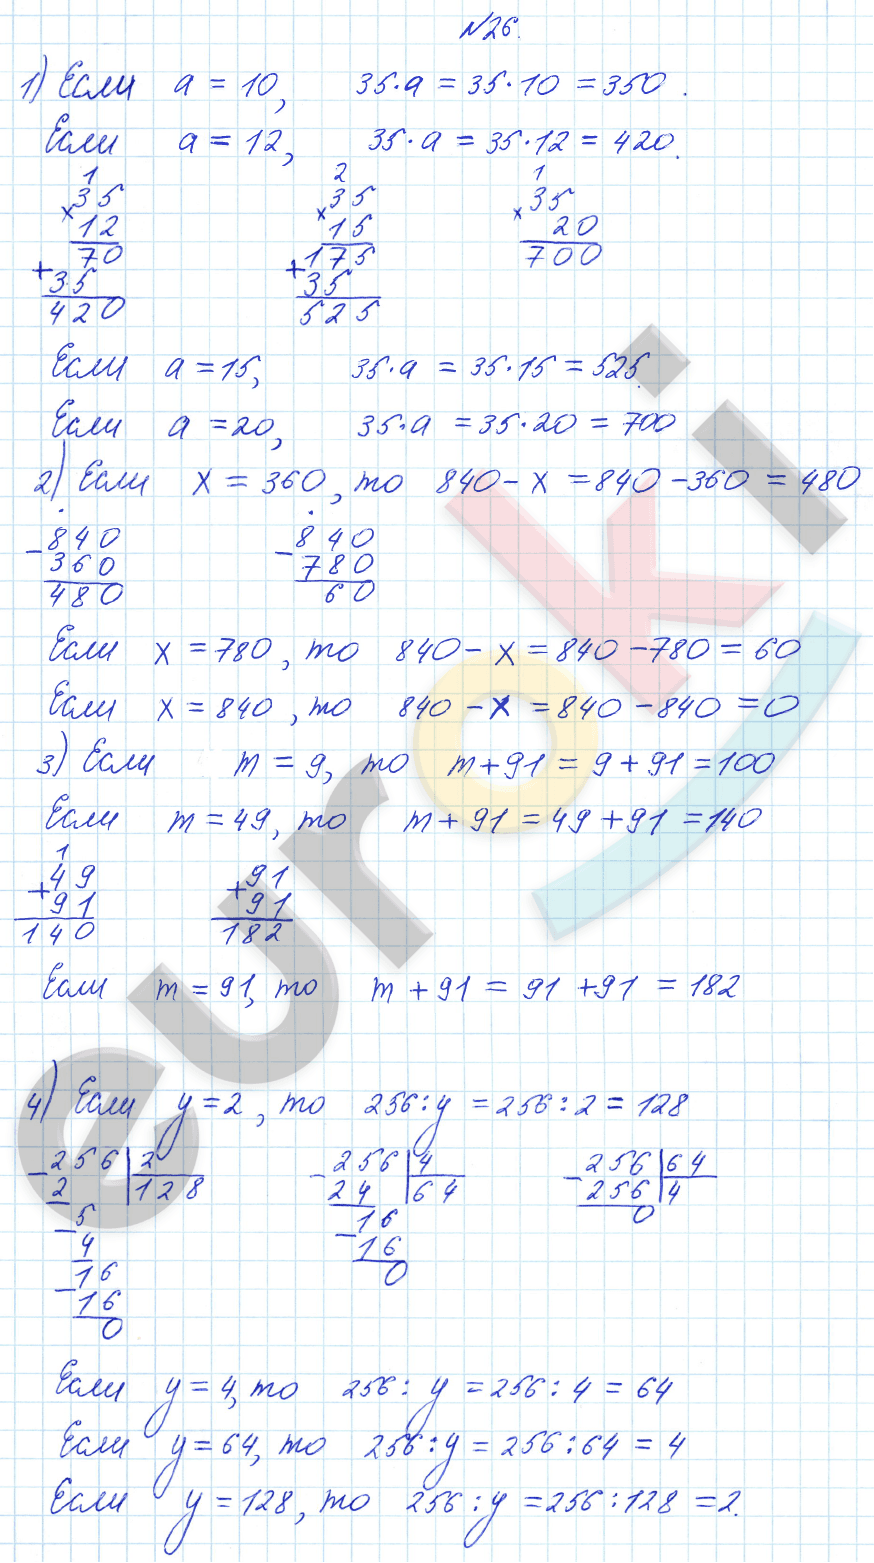 №26.
1) Если a = 10, 35·a = 35·10 = 350.
Если a = 12, 35·a = 35·12 = 420.
1 2 1
×35 ×35 ×35
12 15 20
70 175 700
+35 +35
420 525
Если a = 15, 35·a = 35·15 = 525.
Если a = 20, 35·a = 35·20 = 700
2) Если x = 360, то 840 - x = 840 - 360 = 480
-840 -840
360 780
480 60
Если x = 780, то 840 - x = 840 - 780 = 60
Если x = 840, то 840 - x = 840 - 840 = 0
3) Если m = 9, то m + 91 = 9 + 91 = 100
Если m = 49, то m + 91 = 49 + 91 = 140
1
+49 +91
91 91
140 182
Если m = 91, то m + 91 = 91 + 91 = 182
4) Если y = 2, то 256 : y = 256 : 2 = 128
-256 2 -256 4 -256 64
2 128 24 64 256 4
-5 -16 0
4 16
-16 0
16
0
Если y = 4, то 256 : y = 256 : 4 = 64
Если y = 64, то 256 : y = 256 : 64 = 4
Если y = 128, то 256 : y = 256 : 128 = 2.
euroki